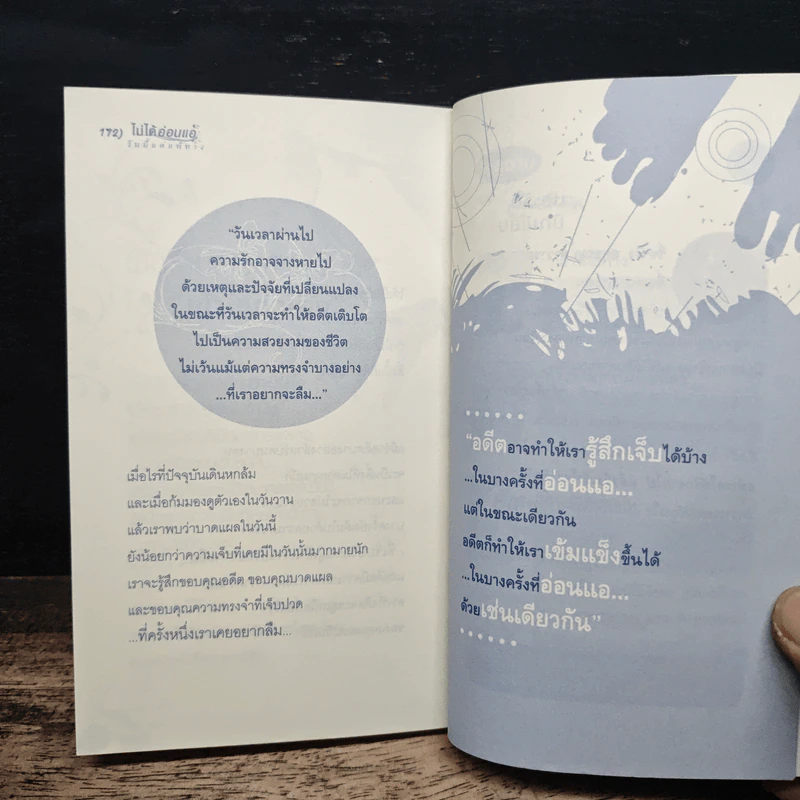 172) ไม่ได้อ่อนแอ
"วันเวลาผ่านไป
ความรักอาจจางหายไป
ด้วยเหตุและปัจจัยที่เปลี่ยนแปลง
ในขณะที่วันเวลาจะทำให้อดีตเติบโต
ไปเป็นความสวยงามของชีวิต
ไม่เว้นแม้แต่ความทรงจำบางอย่าง
...ที่เราอยากจะลืม..."
เมื่อไรที่ปัจจุบันเดินหกล้ม
และเมื่อก้มมองดูตัวเองในวันวาน
แล้วเราพบว่าบาดแผลในวันนี้
ยังน้อยกว่าความเจ็บที่เคยมีในวันนั้นมากมายนัก
เราจะรู้สึกขอบคุณอดีต ขอบคุณบาดแผล
และขอบคุณความทรงจำที่เจ็บปวด
...ที่ครั้งหนึ่งเราเคยอยากลืม...
"อดีตอาจทำให้เรารู้สึกเจ็บได้บ้าง
...ในบางครั้งที่อ่อนแอ...
แต่ในขณะเดียวกัน
อดีตก็ทำให้เราเข้มแข็งขึ้นได้
...ในบางครั้งที่อ่อนแอ...
ด้วยเช่นเดียวกัน"